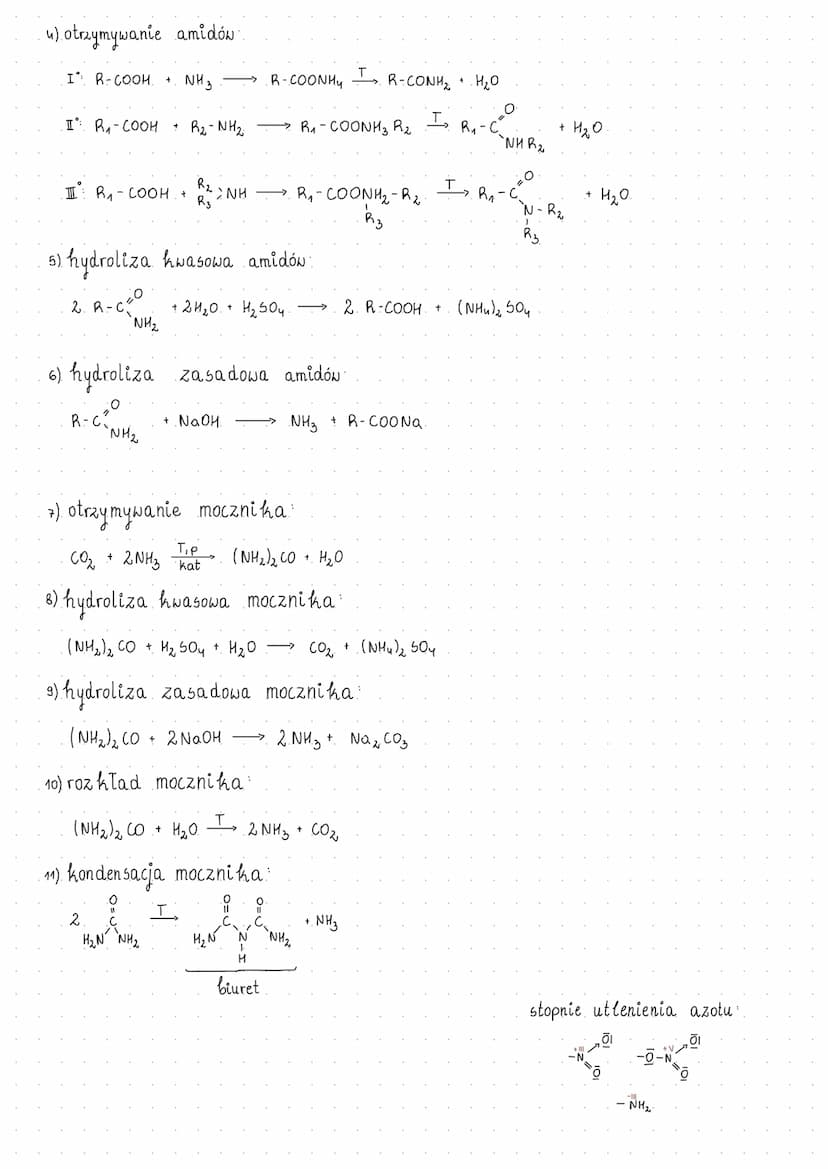 4) otrzymywanie amidów:
I°: R-COOH + NH₃ ⟶ R-COONH₄ T⟶ R-CONH₂ + H₂O
II°: R₁-COOH + R₂-NH₂ ⟶ R₁-COONH₃R₂ T⟶ R₁-C=O NHR₂ + H₂O
III°: R₁-COOH + R₂ R₃ >NH ⟶ R₁-COONH₂-R₂ R₃ T⟶ R₁-C=O N-R₂ R₃ + H₂O
5) hydroliza kwasowa amidów:
2 R-C=O NH₂ + 2H₂O + H₂SO₄ ⟶ 2 R-COOH + (NH₄)₂SO₄
6) hydroliza zasadowa amidów:
R-C=O NH₂ + NaOH ⟶ NH₃ + R-COONa
7) otrzymywanie mocznika:
CO₂ + 2NH₃ T,p kat⟶ (NH₂)₂CO + H₂O
8) hydroliza kwasowa mocznika:
(NH₂)₂CO + H₂SO₄ + H₂O ⟶ CO₂ + (NH₄)₂SO₄
9) hydroliza zasadowa mocznika:
(NH₂)₂CO + 2NaOH ⟶ 2NH₃ + Na₂CO₃
10) rozkład mocznika:
(NH₂)₂CO + H₂O T⟶ 2NH₃ + CO₂
11) kondensacja mocznika:
O O O
2 C T⟶ C C + NH₃
H₂N NH₂ H₂N N NH₂
H
biuret
stopnie utlenienia azotu:
+III -N O O -O-N +V O O
-III -NH₂